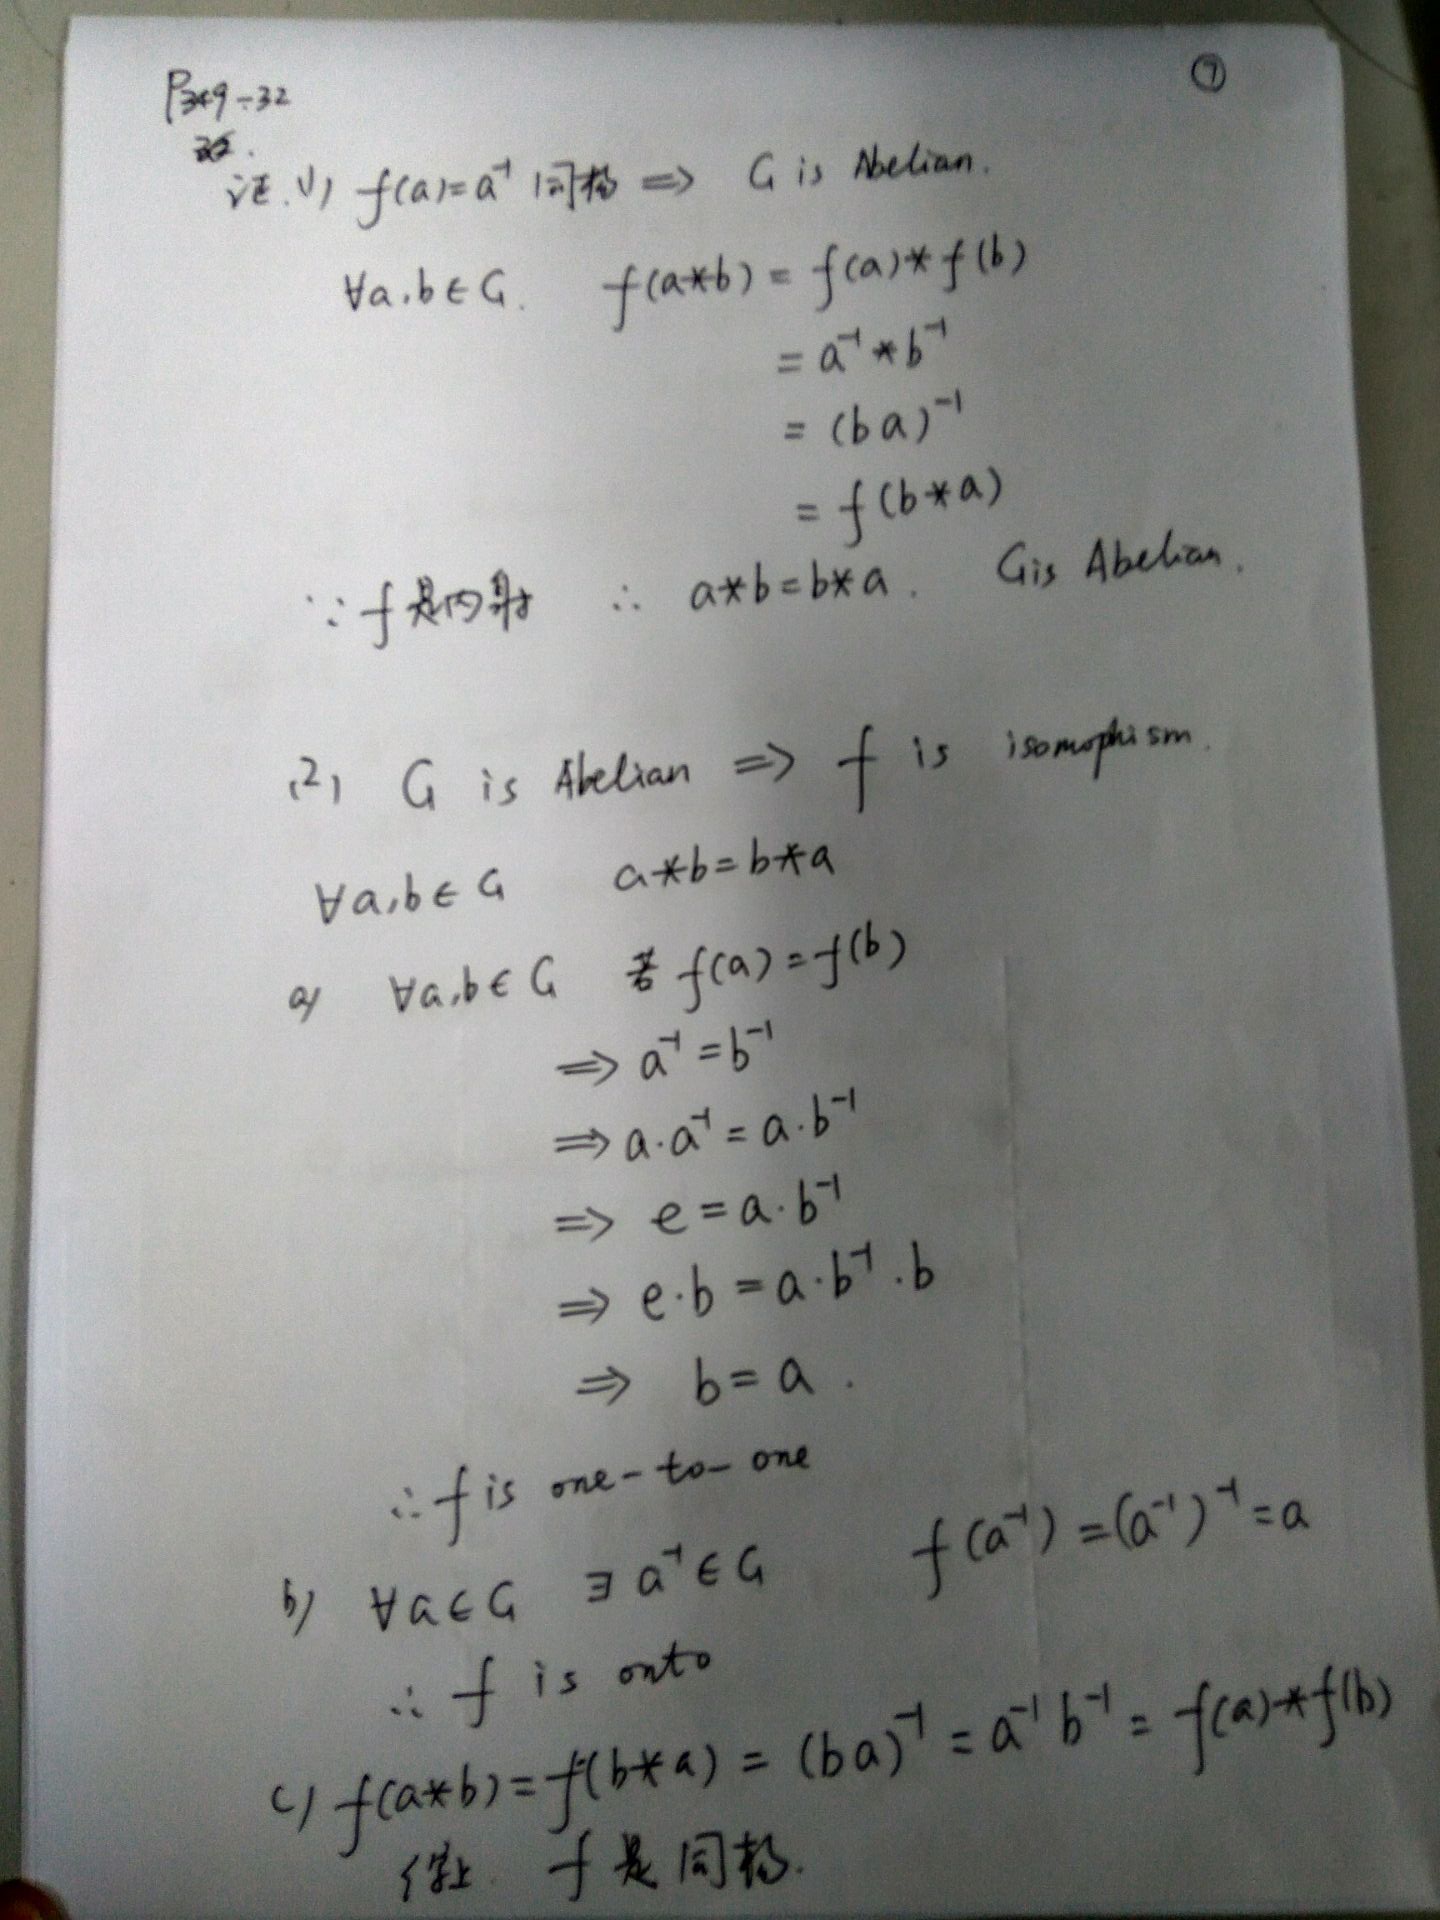 P349-32
⑦
证.(1) f(a)=a⁻¹ 同构 ⇒ G is Abelian.
∀a,b∈G. f(a*b) = f(a)*f(b)
= a⁻¹*b⁻¹
= (ba)⁻¹
= f(b*a)
∵ f是内射 ∴ a*b=b*a. G is Abelian.
(2) G is Abelian ⇒ f is isomophism.
∀a,b∈G a*b=b*a
a) ∀a,b∈G 若 f(a)=f(b)
⇒ a⁻¹=b⁻¹
⇒ a·a⁻¹=a·b⁻¹
⇒ e=a·b⁻¹
⇒ e·b=a·b⁻¹·b
⇒ b=a.
∴ f is one-to-one
b) ∀a∈G ∃a⁻¹∈G f(a⁻¹)=(a⁻¹)⁻¹=a
∴ f is onto
c) f(a*b)=f(b*a)=(ba)⁻¹=a⁻¹b⁻¹=f(a)*f(b)
综上. f是同构.